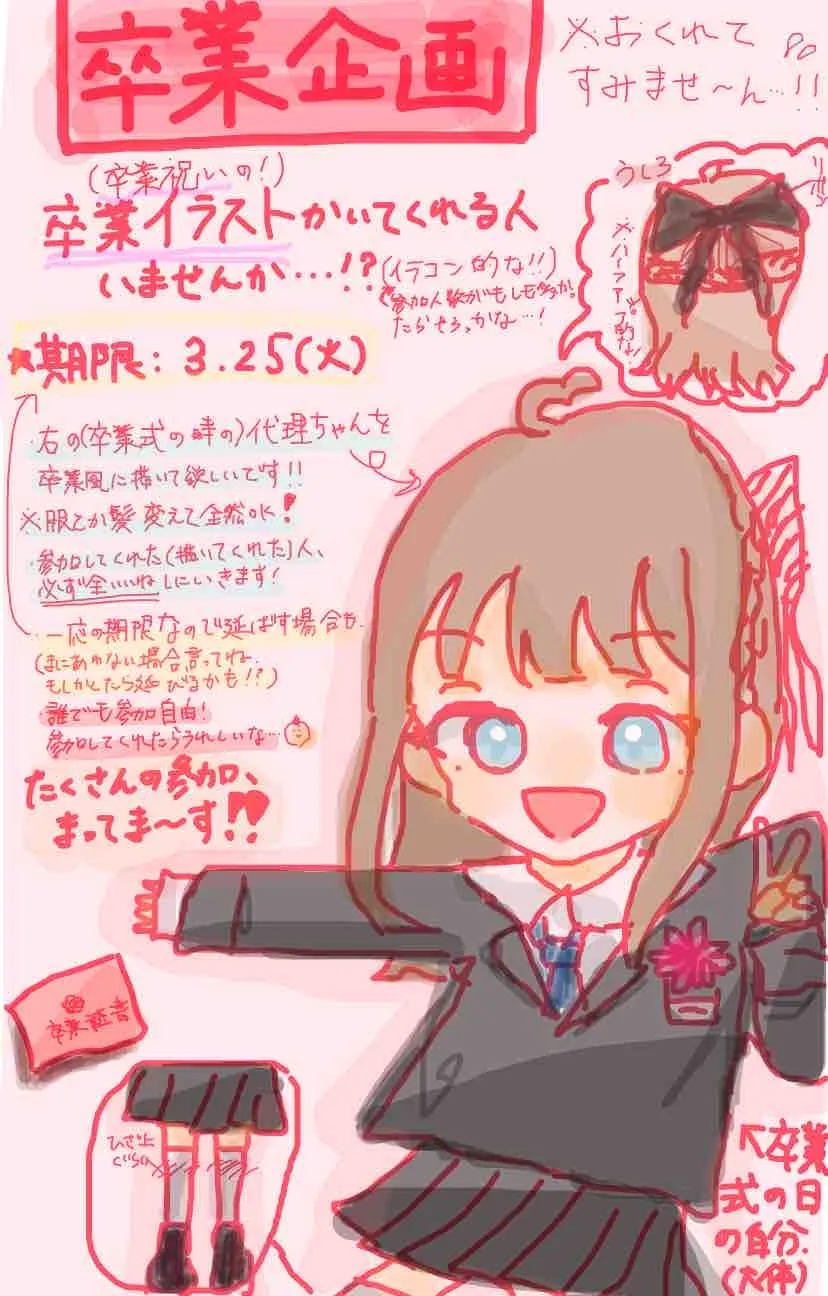 卒業企画
※おくれて
すみませ〜ん…!!
(卒業祝いの!)
卒業イラストかいてくれる人
いませんか…!?
(イラコン的な!!)
参加人数がもし多か
たらせろっかな…!
うしろ
リボン
※ハーフアップ的な!
★期限: 3.25(火)
・右の(卒業式の時の)代理ちゃんを
卒業風に描いて欲しいです!!
※服とか髪変えて全然OK!
・参加してくれた(描いてくれた)人、
必ず全いいねしにいきます!
・一応の期限なので延ばす場合も.
(まにあわない場合言ってね.
もしかしたら延びるかも!?)
・誰でも参加自由!
参加してくれたらうれしいな…
たくさんの参加、
まってま〜す!!
卒業証書
ひざ上
ぐらい
↖卒業
式の日
の自分.
(大体)